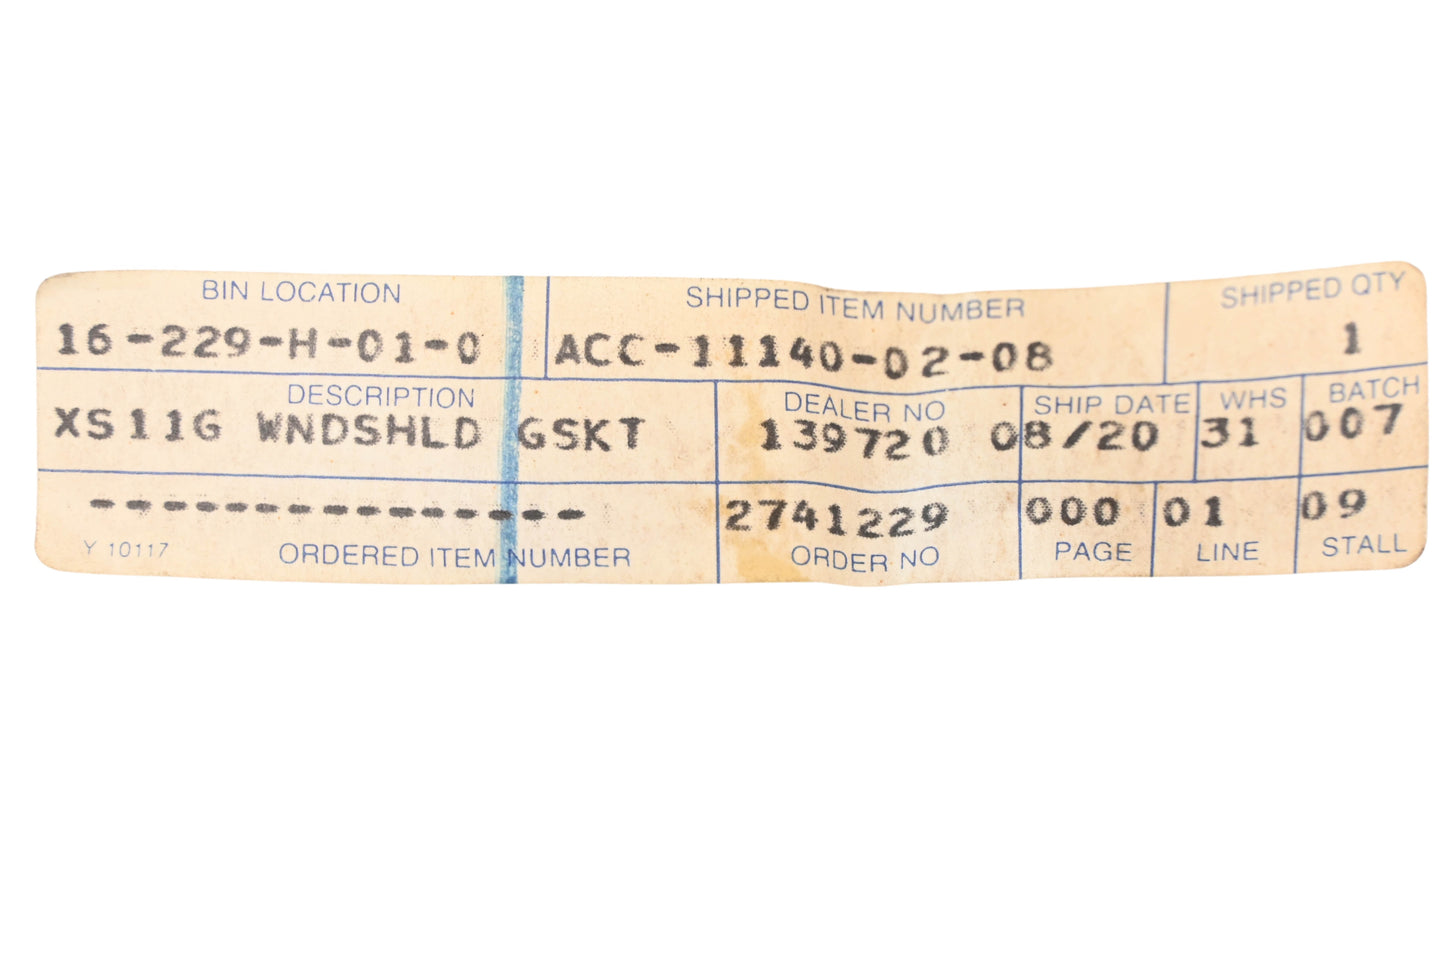 BIN LOCATION SHIPPED ITEM NUMBER SHIPPED QTY
16-229-H-01-0 ACC-11140-02-08 1
DESCRIPTION DEALER NO SHIP DATE WHS BATCH
XS11G WNDSHLD GSKT 139720 08/20 31 007
--------------- 2741229 000 01 09
Y 10117 ORDERED ITEM NUMBER ORDER NO PAGE LINE STALL